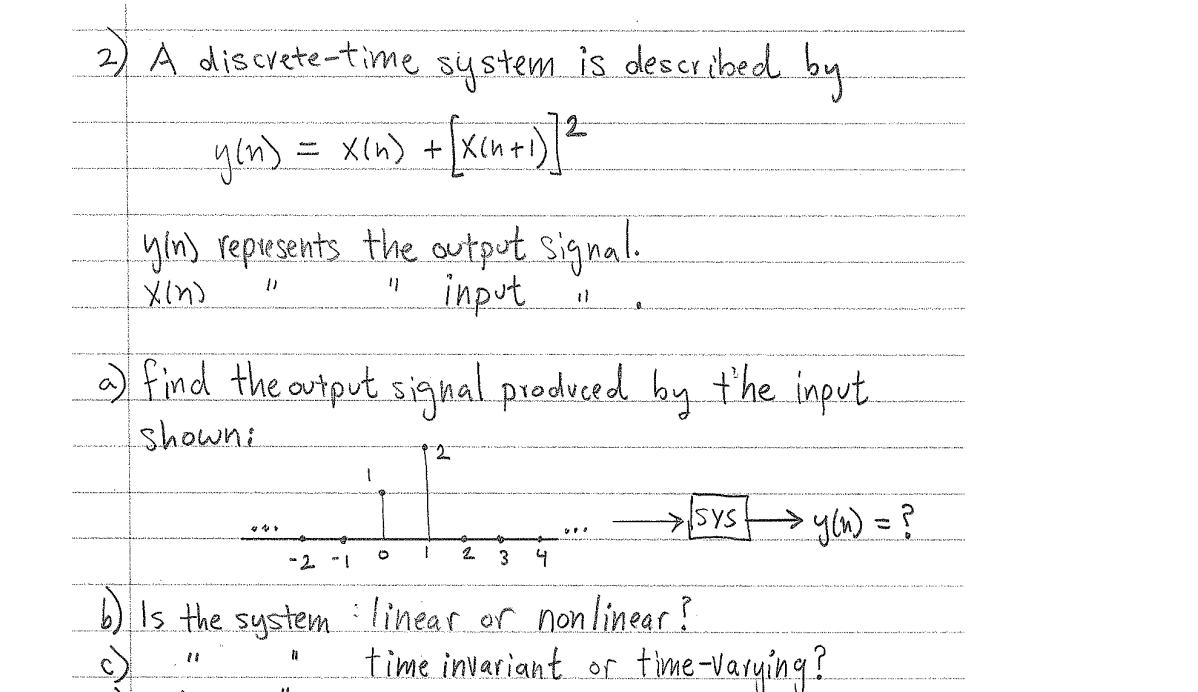 2) A discrete-time system is described by
y(n) = x(n) + [x(n+1)]²
y(n) represents the output signal.
x(n) " " input " .
a) find the output signal produced by the input
shown:
2
1
... ...
-2 -1 0 1 2 3 4
→ SYS → y(n) = ?
b) Is the system : linear or nonlinear?
c) " " time invariant or time-varying?